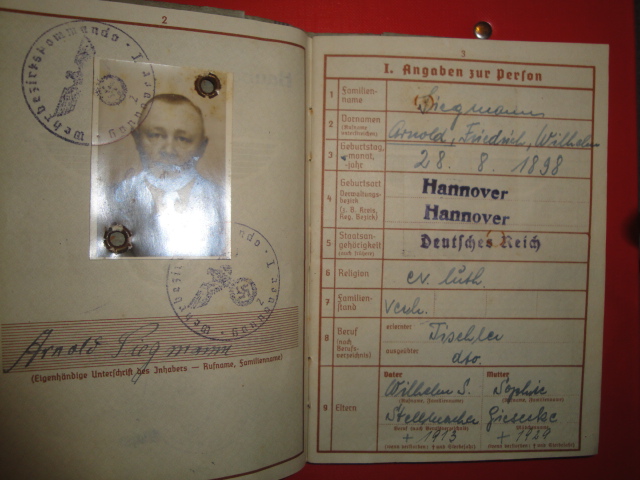 2
Wehrbezirkskommando · I
Hannover
Arnold Siegmann
(Eigenhändige Unterschrift des Inhabers — Rufname, Familienname)
3
I. Angaben zur Person
1 Familien-
name
Siegmann
2 Vornamen
(Rufname
unterstreichen)
Arnold, Friedrich, Wilhelm
3 Geburtstag,
-monat,
-jahr
28. 8. 1898
4 Geburtsort
Verwaltungs-
bezirk
(z. B. Kreis,
Reg. Bezirk)
Hannover
Hannover
5 Staatsan-
gehörigkeit
(auch frühere)
Deutsches Reich
6 Religion
ev. luth.
7 Familien-
stand
verh.
8 Beruf
(nach
Berufs-
verzeichnis)
erlernter
Tischler
ausgeübter
dto.
9 Eltern
Vater
Wilhelm S.
(Rufname, Familienname)
Stellmacher
Beruf (nach Berufsverzeichnis)
+ 1913
(wenn verstorben: † und Sterbejahr)
Mutter
Sophie
(Rufname, Familienname)
Giesecke
+ 1924
(wenn verstorben: † und Sterbejahr)